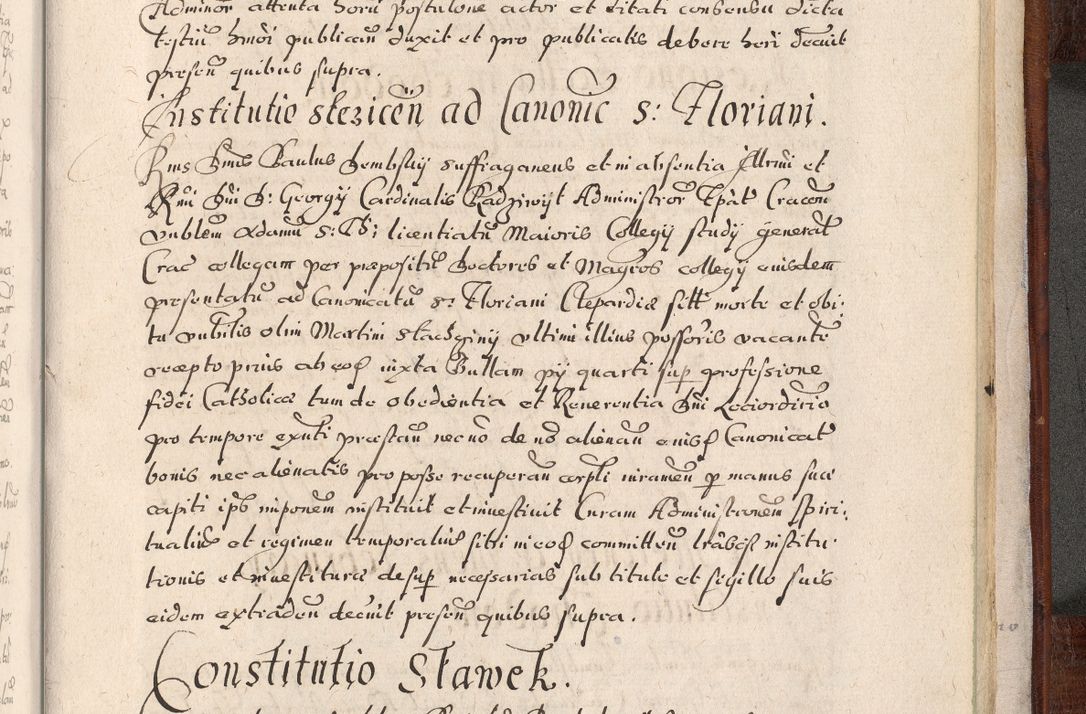 Adminor attenta horū postulone actor et citati consensu dicta
testiū hmōi publicanū duxit et pro publicatis debere heri decūit
presen̄ quibus supra.
Institutio slezicēn̄ ad Canonic s: Floriani.
Rms Dnūs Paulus Dembskij suffraganeus et in absentia Illrmi et
Rmi Dni D: Georgij Cardinalis Radziwiił Administror Epāt Cracoēn
vnblem Adamū S: Th: licentiatū Maioris Collegij studij generāt
Crac collegam per præpositū Doctores et Magros collegij eiusdem
presentatū ad Canonicatū s: Floriani Clepardiæ sitt morte et obi:
tu vnbīlis olim Martini vltimi illius possoris vacante
recepto prius ab eod iuxta Bullam pij quarti sup professione
fidei Catholicæ tum de obedientia et Reuerentia Dni Lociordirio
pro tempore exn̄ti præstan̄ nec nō de nō alienan̄ euisd Canonicat
bonis nec alienatis pro posse recuperan̄ corpli iuramen̄ p manus suæ
capiti ips imponem instituit et inuestiuit Curam Administronem Spiri:
tualiū et regimen temporaliū sibi in eod committen̄ lrābsq institu:
tionis et inuestituræ desup necessarias sub titulo et sigillo suis
eidem extraden̄ decūit presen̄ quibus supra.
Constitutio Sławek.